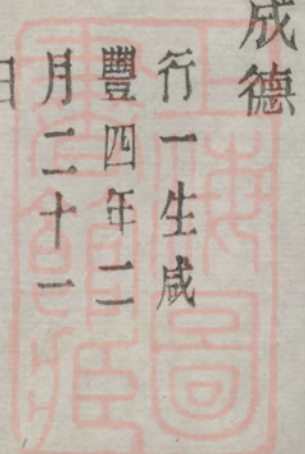 成德
行一生咸
豐四年二
月二十一
日